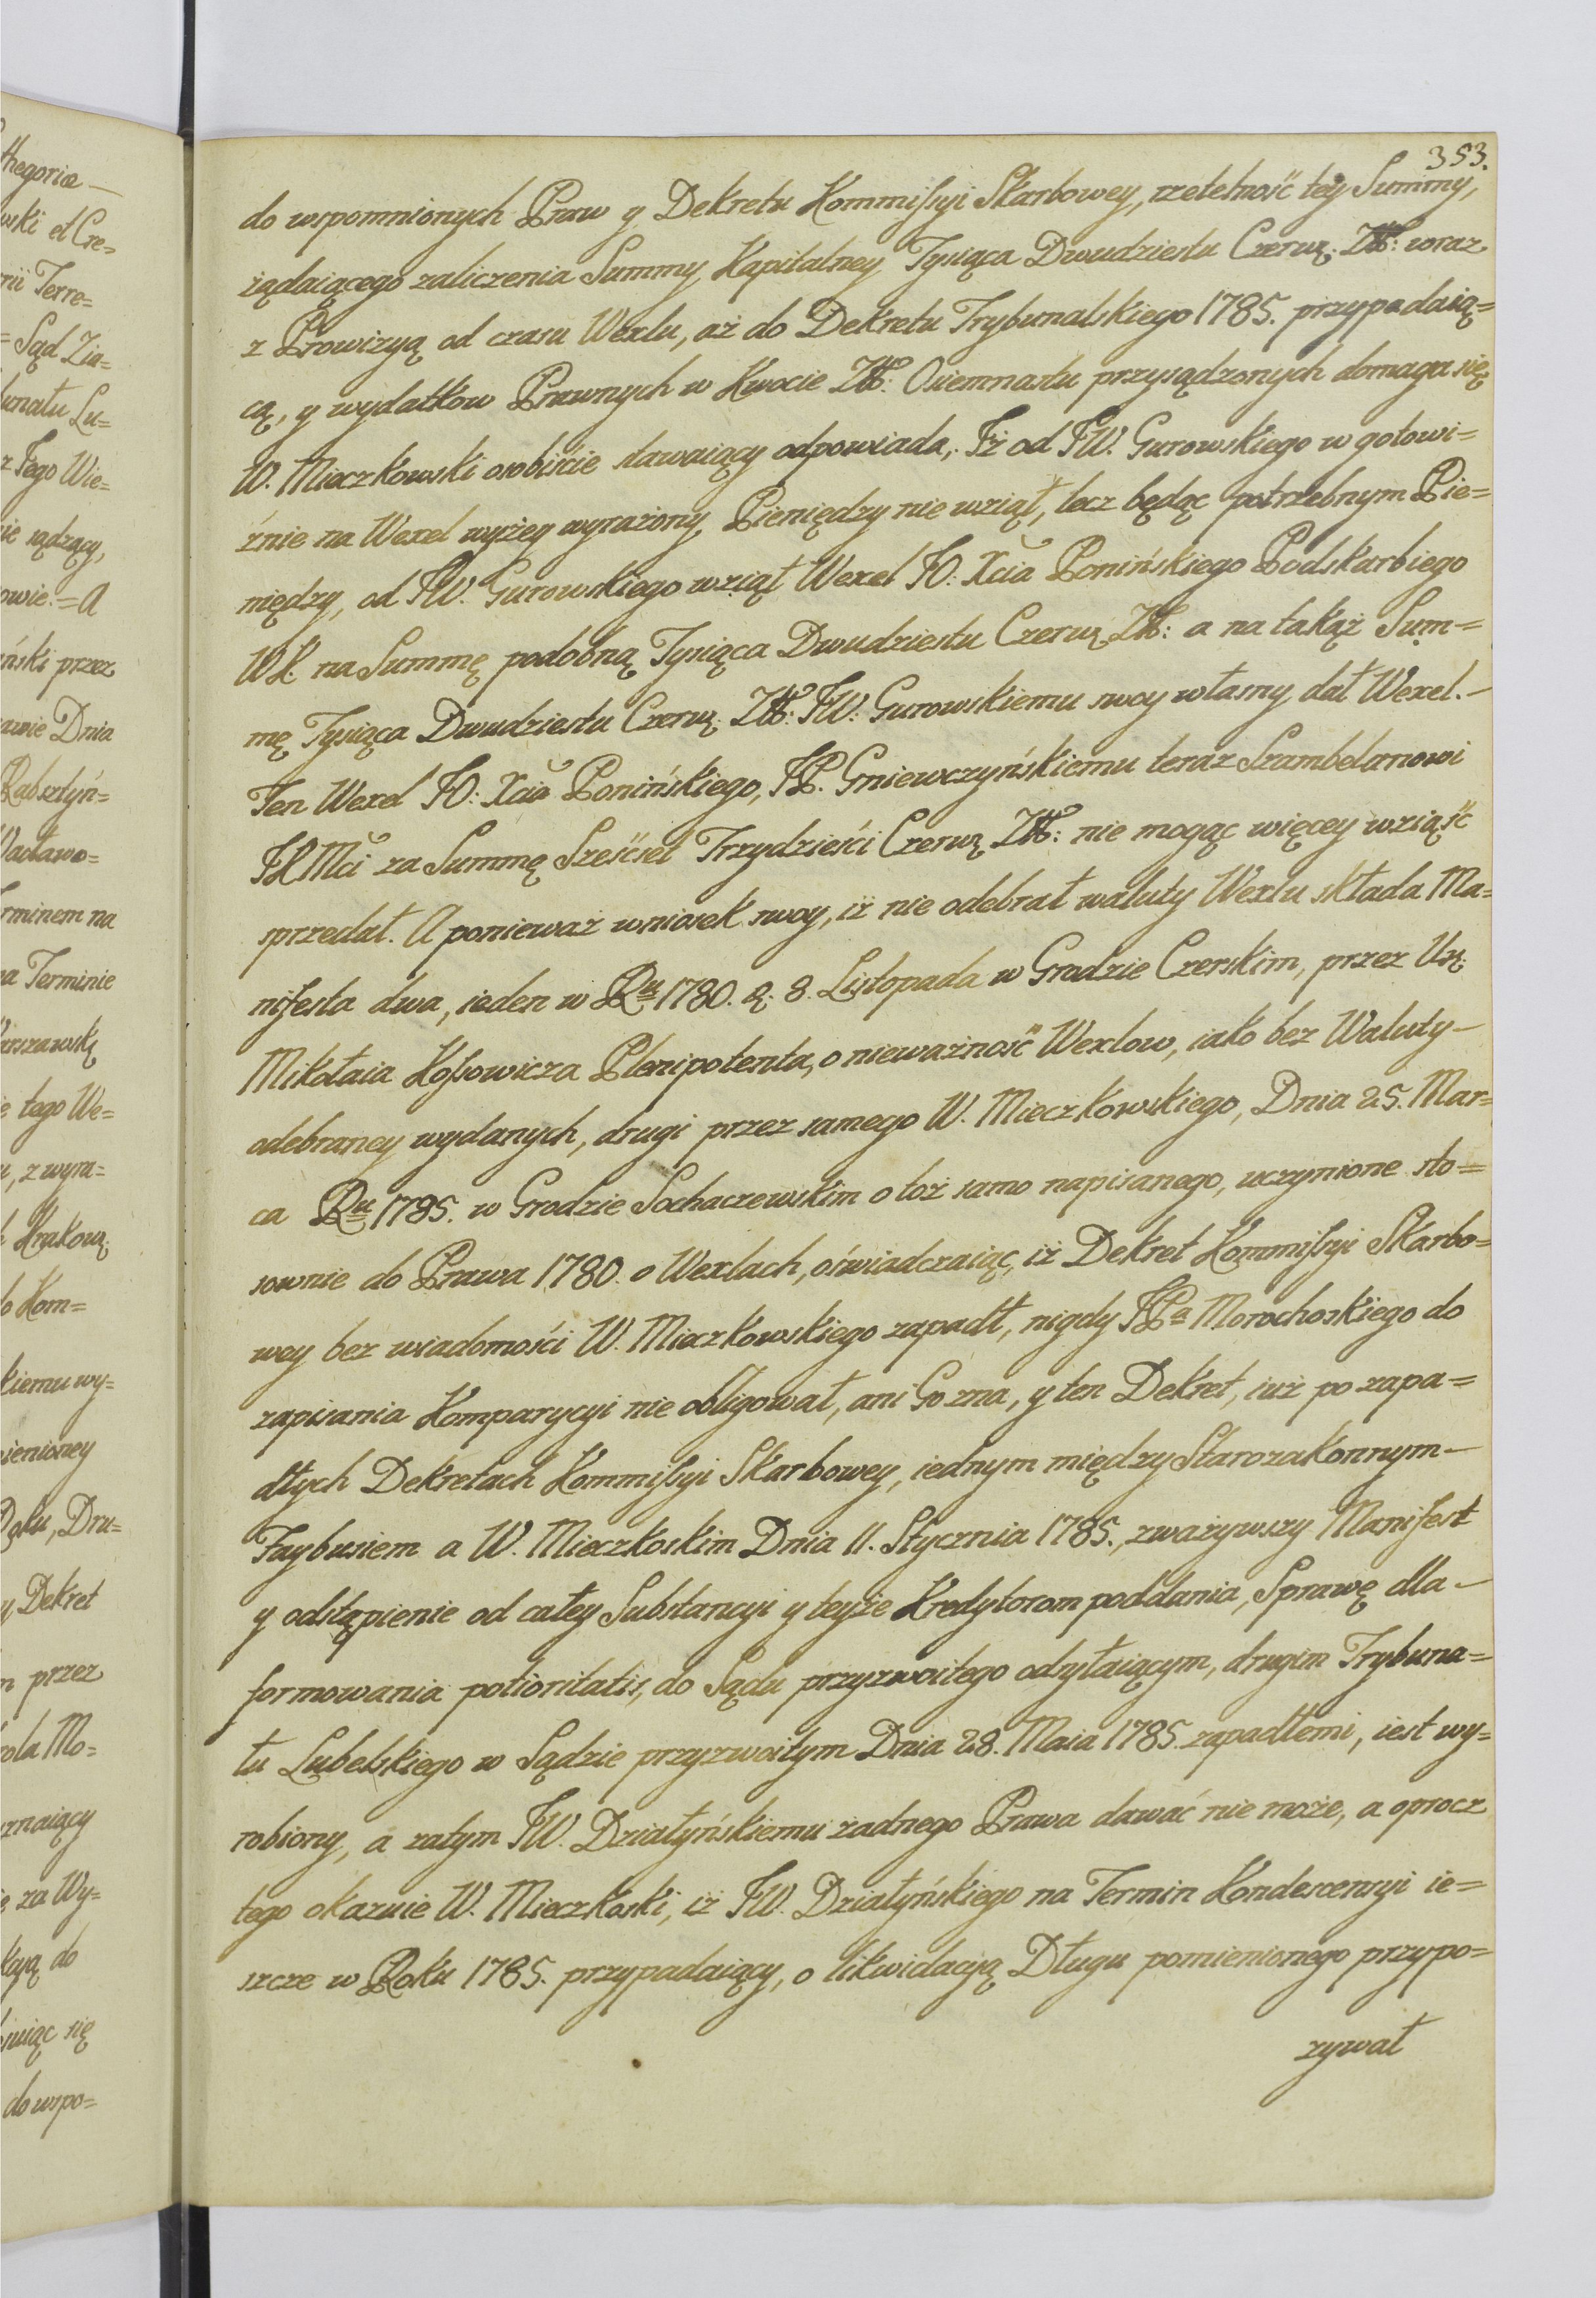 353.
do wspomnionych Praw y Dekretu Kommissyi Skarbowey, rzetelność tey Summy,
żądaiącego zaliczenia Summy Kapitalney Tysiąca Dwudziestu Czerw: Zł: wraz
z Prowizyą od czasu Wexlu, aż do Dekretu Trybunalskiego 1785. przypadaią=
cą, y wydatkow Prawnych w Kwocie Zł: Osiemnastu przysądzonych domaga się
W. Mieczkowski osobiście stawaiący odpowiada, Iż od JW. Gurowskiego w gotowi=
źnie na Wexel wyżey wyrażony, Pieniędzy nie wziął, lecz będąc potrzebnym Pie=
niędzy, od JW. Gurowskiego wziął Wexel JO: Xcia Ponińskiego Podskarbiego
WK. na Summę podobną Tysiąca Dwudziestu Czerw: Zł: a na takąż Sum=
mę Tysiąca Dwudziestu Czerw: Zł: JW: Gurowskiemu swoy własny dał Wexel.—
Ten Wexel JO: Xcia Ponińskiego, JP. Gniewczyńskiemu teraz Szambelanowi
JKMci za Summę Sześćset Trzydzieści Czerw: Zł: nie mogąc więcey wziąść
sprzedał. A ponieważ wniosek swoy, iż nie odebrał waluty Wexlu składa Ma=
nifesta dwa, ieden w Ru 1780. d. 8. Listopada w Grodzie Czerskim, przez Ur:
Mikołaia Kossowicza Plenipotenta, o nieważność Wexlow, iako bez Waluty—
odebraney wydanych, drugi przez samego W. Mieczkowskiego, Dnia 25. Mar=
ca Ru 1785. w Grodzie Sochaczewskim o toż samo napisanego, uczynione sto=
sownie do Prawa 1780. o Wexlach, oświadczaiąc, iż Dekret Kommissyi Skarbo=
wey bez wiadomości W. Mieczkowskiego zapadł, nigdy JPa Morochoskiego do
zapisania Komparycyi nie obligował, ani Go zna, y ten Dekret, iuż po zapa=
dłych Dekretach Kommissyi Skarbowey, iednym między Starozakonnym—
Faybusiem a W. Mieczkoskim Dnia 11. Stycznia 1785., zważywszy Manifest
y odstąpienie od całey Substancyi y teyże Kredytorom poddania, Sprawę dla—
formowania potioritatis, do Sądu przyzwoitego odsyłaiącym, drugim Trybuna=
łu Lubelskiego w Sądzie przyzwoitym Dnia 28. Maia 1785. zapadłemi, iest wy=
robiony, a zatym JW. Działyńskiemu żadnego Prawa dawać nie może, a oprocz
tego okazuie W. Mieczkoski, iż JW. Działyńskiego na Termin Kondescensyi ie=
szcze w Roku 1785. przypadaiący, o likwidacyą Długu pomienionego przypo=
zywał